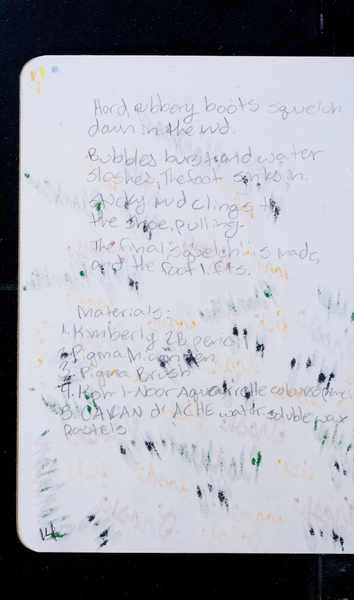 Hard rubbery boots squelch
down in the mud.
Bubbles burst and water
sloshes. The foot sinks in.
Sticky mud clings to
the shoe, pulling.
The final squelch is made,
and the foot lifts.
Materials:
1. Kimberly 2B pencil
2. Pigma Micron Pen
3. Pigma Brush
4. Koh-I-Noor Aquarelle coloured
5. CARAN d'ACHE water soluble wax
pastels
14